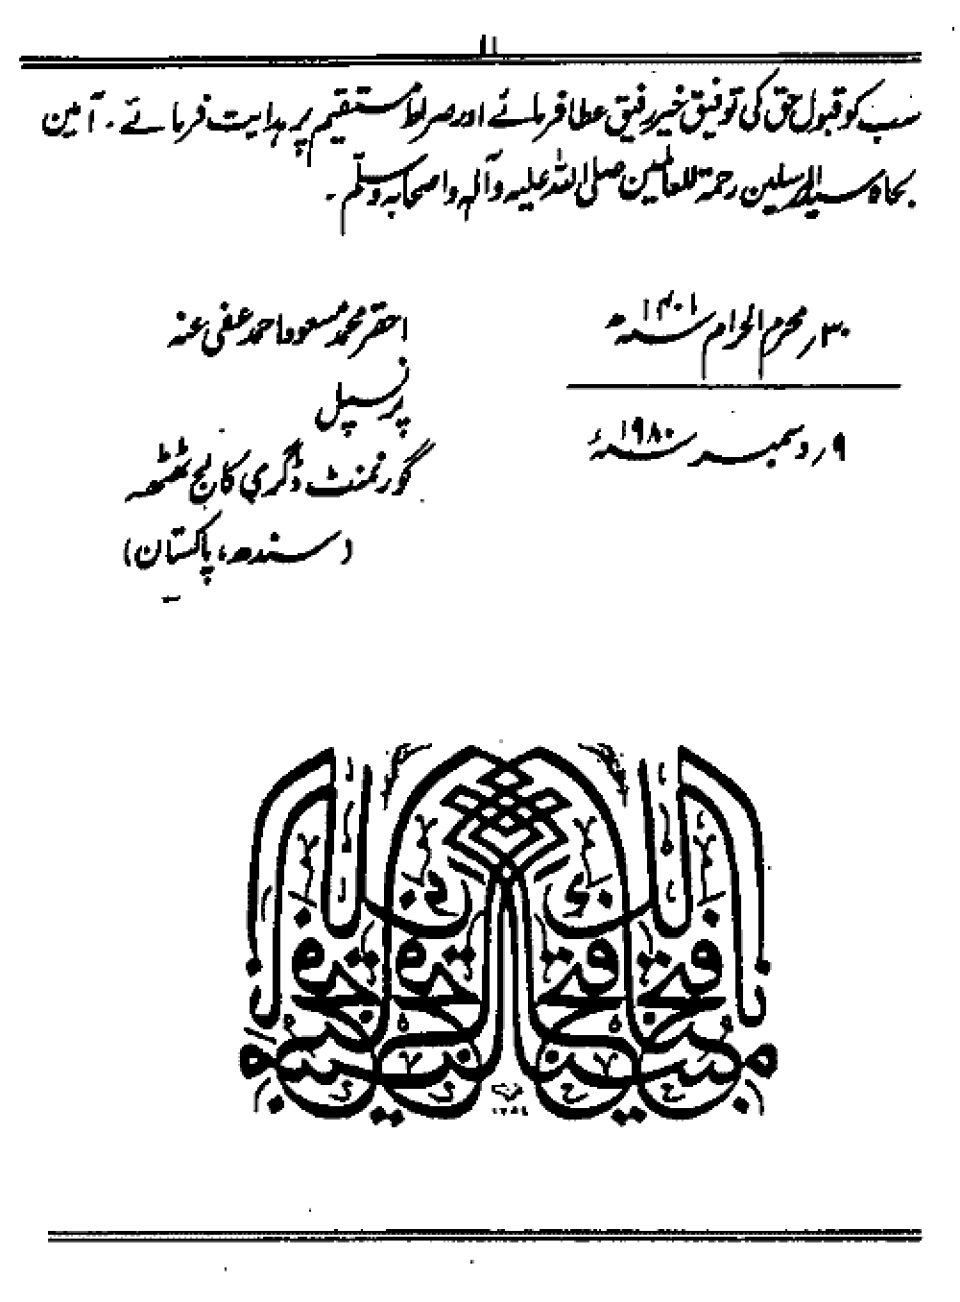 ۱۱
سب کو قبول حق کی توفیق خیر رفیق عطا فرمائے اور صراط مستقیم پر ہدایت فرمائے ۔ آمین
بجاہ سید المرسلین رحمۃ للعالمین صلی اللہ علیہ وآلہ واصحابہ وسلّم ۔
۳۰ر محرم الحرام ۱۴۰۱ سنہ ھ
۹ر دسمبر ۱۹۸۰ سنہ ء
احقر محمد مسعود احمد عفی عنہ
پرنسپل
گورنمنٹ ڈگری کالج ٹھٹھہ
(سندھ، پاکستان)